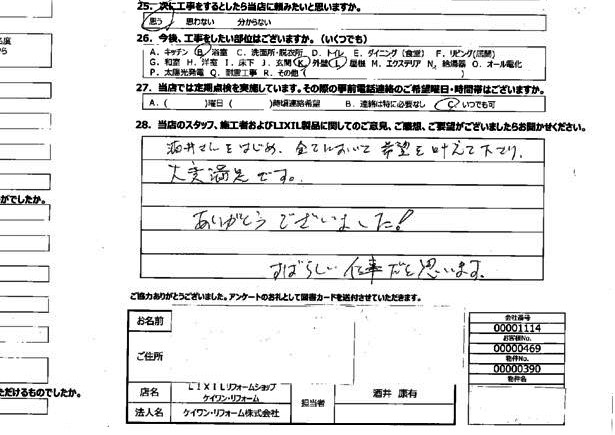 25. 次に工事をするとしたら当店に頼みたいと思いますか。
思う 思わない 分からない
26. 今後、工事をしたい部位はございますか。(いくつでも)
A. キッチン B. 浴室 C. 洗面所・脱衣所 D. トイレ E. ダイニング(食堂) F. リビング(居間)
G. 和室 H. 洋室 I. 床下 J. 玄関 K. 外壁 L. 屋根 M. エクステリア N. 給湯器 O. オール電化
P. 太陽光発電 Q. 耐震工事 R. その他( )
27. 当店では定期点検を実施しています。その際の事前電話連絡のご希望曜日・時間帯はございますか。
A. ( )曜日 ( )時頃連絡希望 B. 連絡は特に必要なし C. いつでも可
28. 当店のスタッフ、施工者およびLIXIL製品に関してのご意見、ご感想、ご要望がございましたらお聞かせください。
酒井さんをはじめ、全てにおいて希望を叶えて下さり、
大変満足です。
ありがとうございました!
すばらしい仕事だと思います。
ご協力ありがとうございました。アンケートのお礼として図書カードを送付させていただきます。
お名前
ご住所
店名 LIXILリフォームショップ
ケイワン・リフォーム
法人名 ケイワン・リフォーム株式会社
担当者 酒井 康有
会社番号
00001114
お客様No.
00000469
物件No.
00000390
物件名
がでしたか。
ただけるものでしたか。